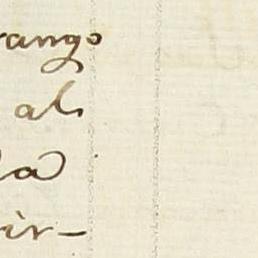 rango
al
la
vir-